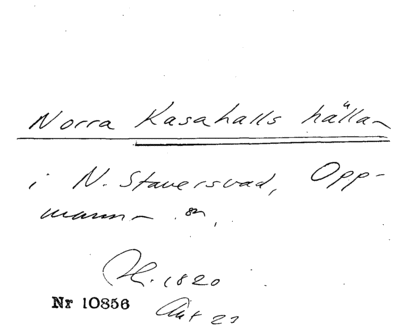 Norra Kasahalls hällan
i N. Staversvad, Opp-
manna sn,
H. 1820
Nr 10856
Ant 27